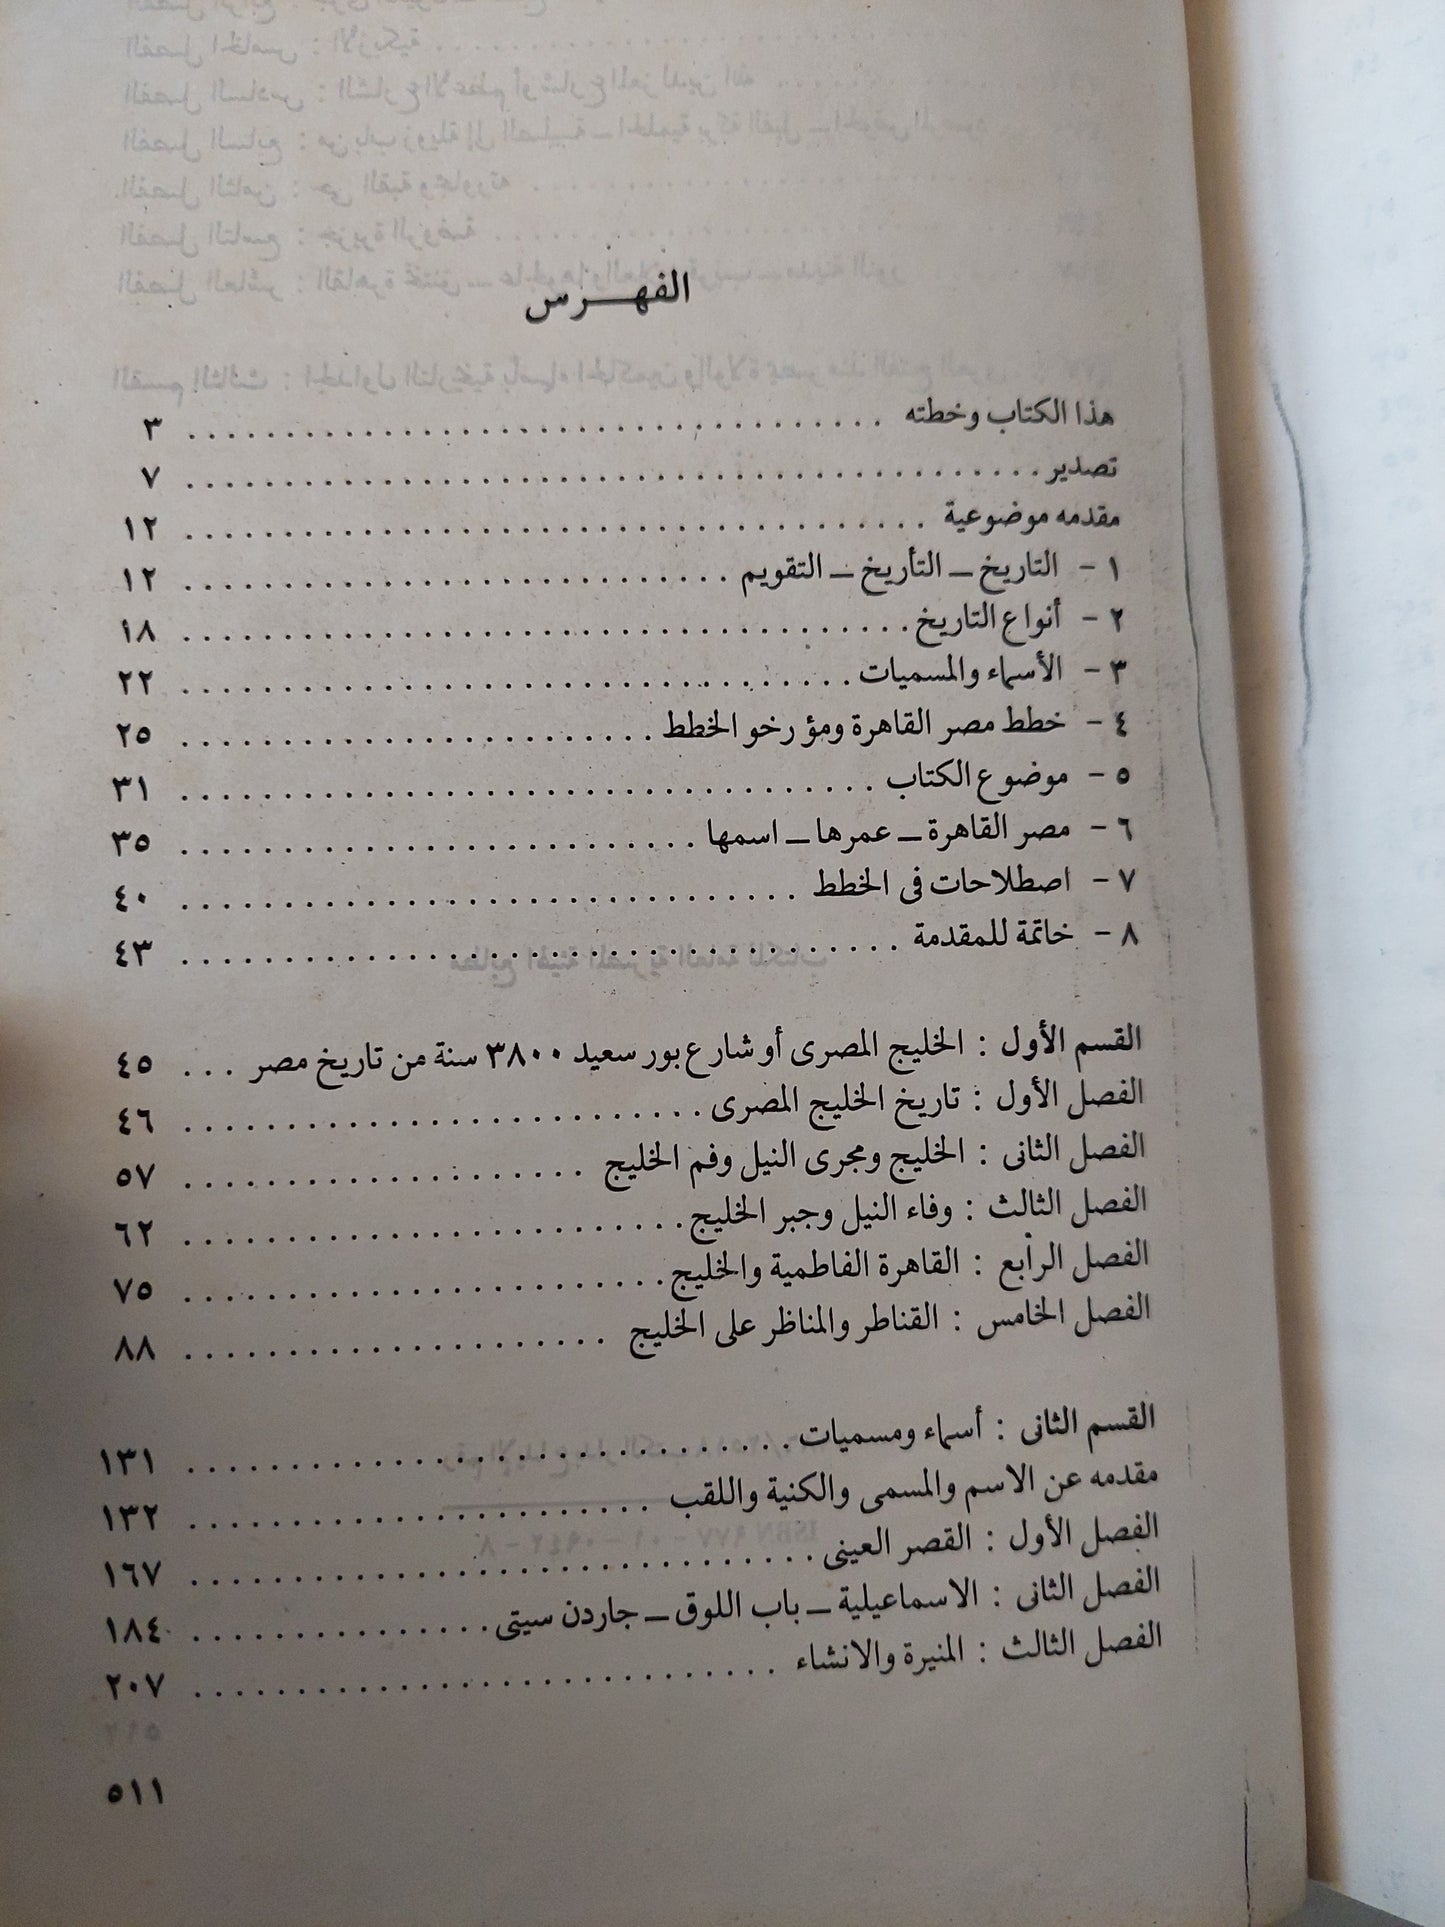 الفهرس
هذا الكتاب وخطته . . . . . . . . . . . . . . . . . . . . ٣
تصدير . . . . . . . . . . . . . . . . . . . . ٧
مقدمه موضوعية . . . . . . . . . . . . . . . . . . . . ١٢
١ - التاريخ ــ التأريخ ــ التقويم . . . . . . . . . . . . . . . . . . . . ١٢
٢ - أنواع التاريخ . . . . . . . . . . . . . . . . . . . . ١٨
٣ - الأسماء والمسميات . . . . . . . . . . . . . . . . . . . . ٢٢
٤ - خطط مصر القاهرة ومؤرخو الخطط . . . . . . . . . . . . . . . . . . . . ٢٥
٥ - موضوع الكتاب . . . . . . . . . . . . . . . . . . . . ٣١
٦ - مصر القاهرة ــ عمرها ــ اسمها . . . . . . . . . . . . . . . . . . . . ٣٥
٧ - اصطلاحات فى الخطط . . . . . . . . . . . . . . . . . . . . ٤٠
٨ - خاتمة للمقدمة . . . . . . . . . . . . . . . . . . . . ٤٣
القسم الأول : الخليج المصرى أو شارع بور سعيد ٣٨٠٠ سنة من تاريخ مصر . . . ٤٥
الفصل الأول : تاريخ الخليج المصرى . . . . . . . . . . . . . . . . . . . . ٤٦
الفصل الثانى : الخليج ومجرى النيل وفم الخليج . . . . . . . . . . . . . . . . . . . . ٥٧
الفصل الثالث : وفاء النيل وجبر الخليج . . . . . . . . . . . . . . . . . . . . ٦٢
الفصل الرابع : القاهرة الفاطمية والخليج . . . . . . . . . . . . . . . . . . . . ٧٥
الفصل الخامس : القناطر والمناظر على الخليج . . . . . . . . . . . . . . . . . . . . ٨٨
القسم الثانى : أسماء ومسميات . . . . . . . . . . . . . . . . . . . . ١٣١
مقدمه عن الاسم والمسمى والكنية واللقب . . . . . . . . . . . . . . . . . . . . ١٣٢
الفصل الأول : القصر العينى . . . . . . . . . . . . . . . . . . . . ١٦٧
الفصل الثانى : الاسماعيلية ــ باب اللوق ــ جاردن سيتى . . . . . . . . . . . . . . . ١٨٤
الفصل الثالث : المنيرة والانشاء . . . . . . . . . . . . . . . . . . . . ٢٠٧
٥١١